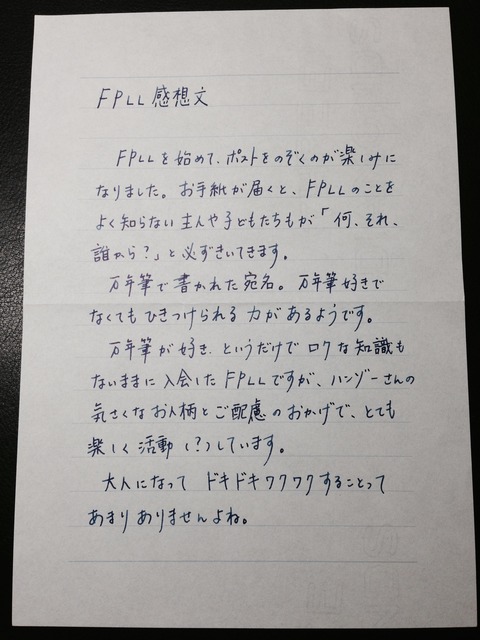 FPLL 感想文
FPLLを始めて、ポストをのぞくのが楽しみに
なりました。お手紙が届くと、FPLLのことを
よく知らない主人や子どもたちもが「何、それ、
誰から？」と必ずきいてきます。
万年筆で書かれた宛名。万年筆好きで
なくてもひきつけられる力があるようです。
万年筆が好き、というだけでロクな知識も
ないままに入会したFPLLですが、ハンゾーさんの
気さくなお人柄とご配慮のおかげで、とても
楽しく活動（？）しています。
大人になって ドキドキワクワクすることって
あまりありませんよね。